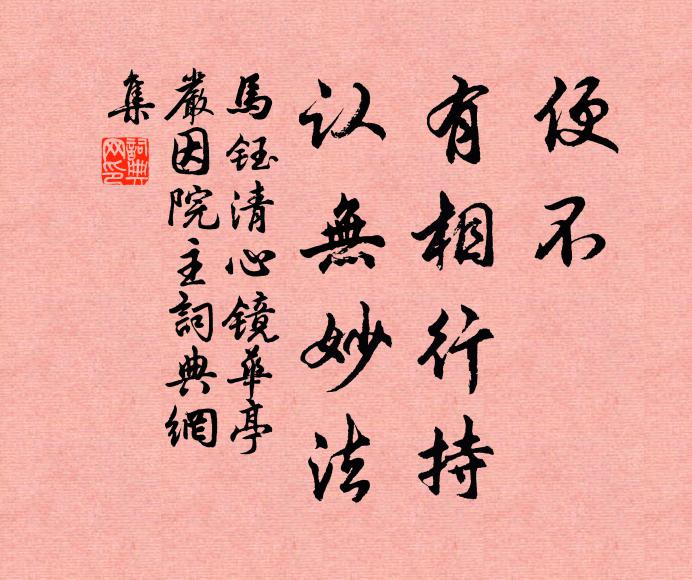 便不
有相行持
认無妙法
馬鈺清心镜華亭
嚴因院主詞典網
集
詞典網印